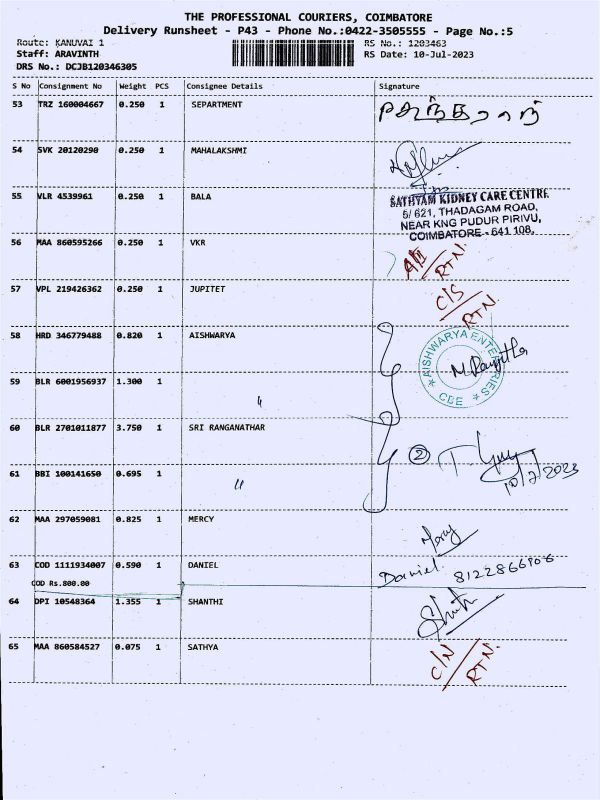 THE PROFESSIONAL COURIERS, COIMBATORE
Delivery Runsheet - P43 - Phone No.:0422-3505555 - Page No.:5
Route: KANUVAI 1 RS No.: 1203463
Staff: ARAVINTH RS Date: 10-Jul-2023
DRS No.: DCJB120346305
S No Consignment No Weight PCS Consignee Details Signature
53 TRZ 160004667 0.250 1 SEPARTMENT
54 SVK 20120290 0.250 1 MAHALAKSHMI
55 VLR 4539961 0.250 1 BALA
SATHYAM KIDNEY CARE CENTRE
5/ 621, THADAGAM ROAD,
NEAR KNG PUDUR PIRIVU,
COIMBATORE - 641 108.
56 MAA 860595266 0.250 1 VKR
RTN.
57 VPL 219426362 0.250 1 JUPITET C/S
RTN.
58 HRD 346779488 0.820 1 AISHWARYA
AISHWARYA ENTERPRISES
CBE
59 BLR 6001956937 1.300 1 "
60 BLR 2701011877 3.750 1 SRI RANGANATHAR
2
10/7/2023
61 BBI 100141650 0.695 1 "
62 MAA 297059081 0.825 1 MERCY
Mercy
63 COD 1111934007 0.590 1 DANIEL Daniel.
COD Rs.800.00
64 DPI 10548364 1.355 1 SHANTHI
65 MAA 860584527 0.075 1 SATHYA C/N
RTN.